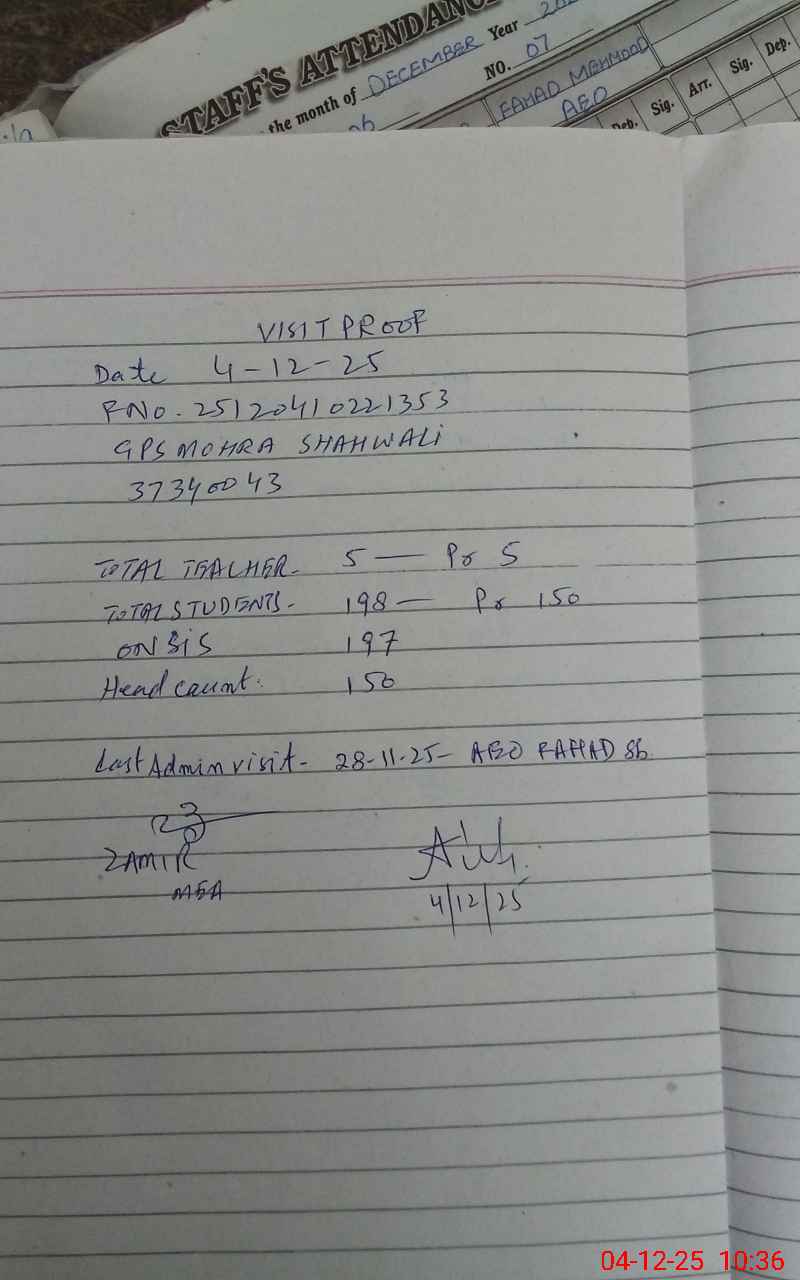 STAFF'S ATTENDANC
the month of DECEMBER Year 20
NO. 07
FAHAD MEHMOOD
AEO
Dep. Sig. Arr. Sig. Dep.
VISIT PROOF
Date 4-12-25
RNO. 25120410221353
GPS MOHRA SHAHWALI
37340043
TOTAL TEACHER. 5 — Pr 5
TOTAL STUDENTS. 198 — Pr 150
ON SIS 197
Head count. 150
Last Admin visit - 28-11-25 - AEO FAHAD Sb.
ZAMIR
MEA
4/12/25
04-12-25 10:36